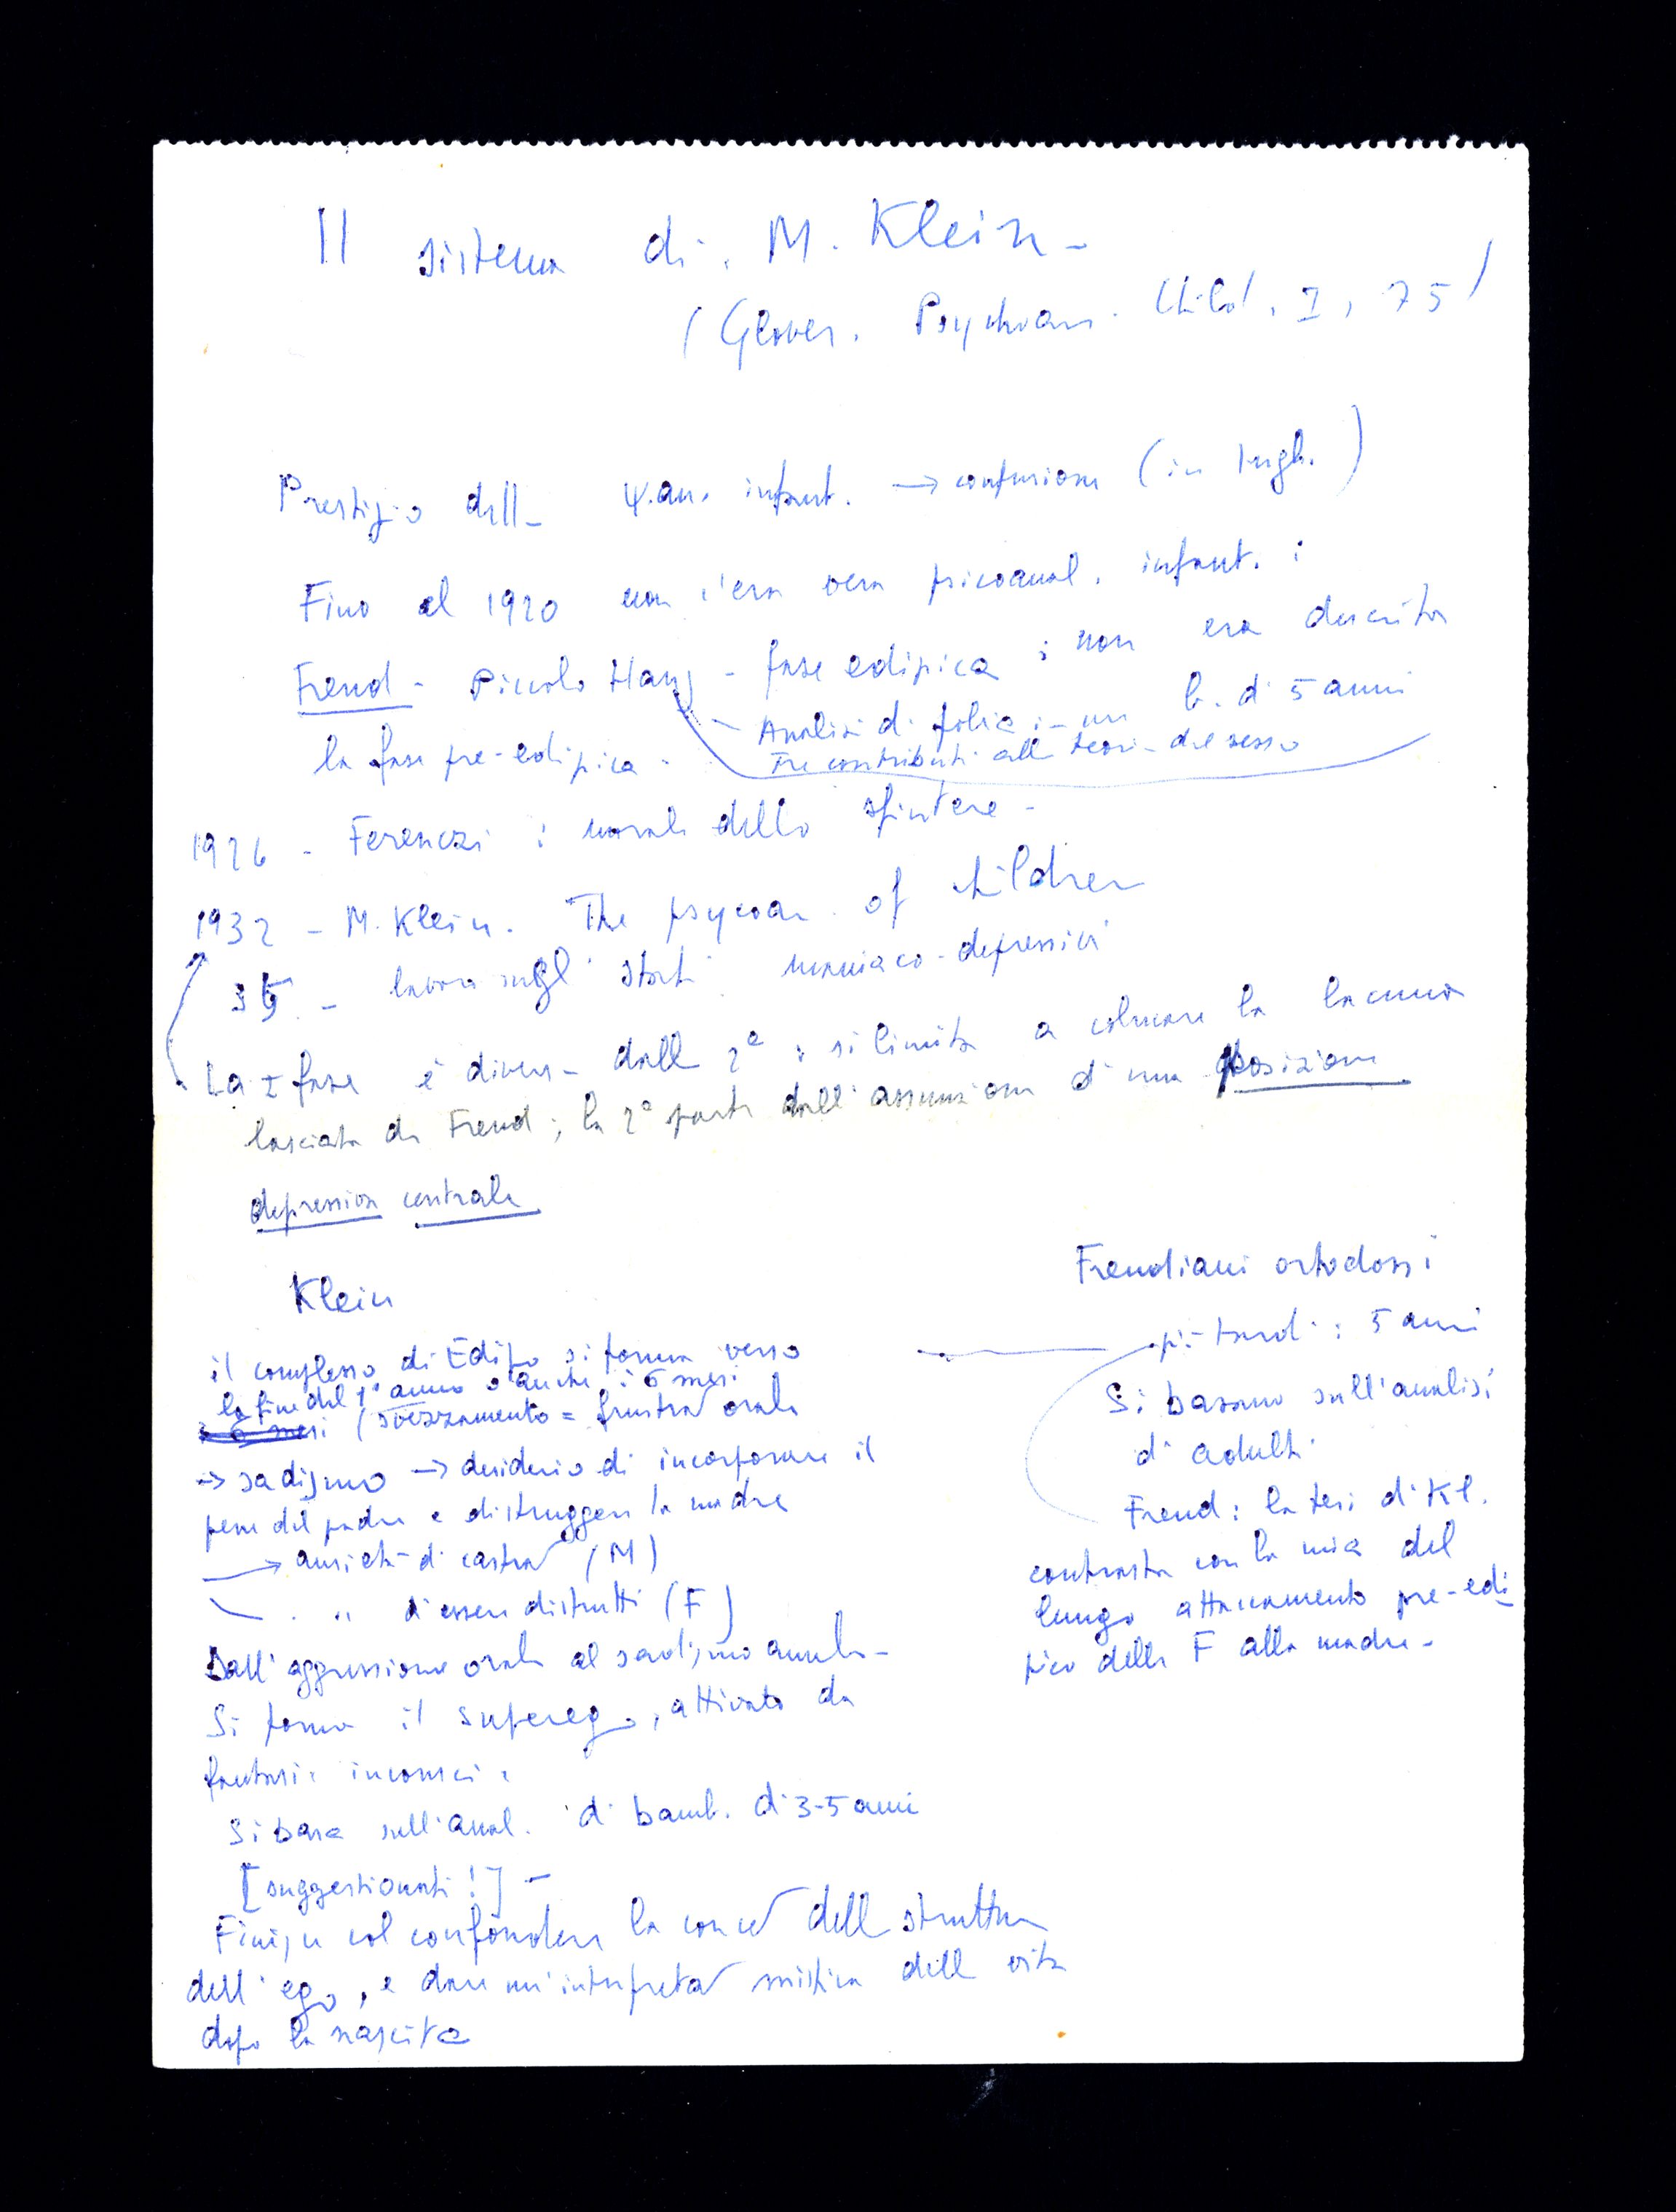 Il sistema di M. Klein -
(Glover. Psychoan. Child, I, 75)
Prestigio della ψ.an. infant. → confusione (in Ingh.)
Fino al 1920 non c'era vera psicoanal. infant. :
Freud - Piccolo Hans - fase edipica ; non era descritta
- Analisi di fobia in un b. di 5 anni
la fase pre-edipica - Tre contributi alla teoria del sesso
1926 - Ferenczi : morale dello sfintere -
1932 - M. Klein. The psycoan. of children
35 - lavoro sugli stati maniaco-depressivi
La I fase è diversa dalla 2ª : si limita a colmare la lacuna
lasciata da Freud ; la 2ª parte dall'assunzione di una posizione
depressiva centrale
Klein
il complesso di Edipo si forma verso
la fine del 1° anno o anche i 6 mesi
i 6 mesi (svezzamento = frustraz orale
→ sadismo → desiderio di incorporare il
pene del padre e distruggere la madre
→ ansietà di castraz (M)
" di essere distrutti (F)
Dall'aggressione orale al sadismo anale -
Si forma il superego, attivato da
fantasie inconscie
Si basa sull'anal. di bamb. di 3-5 anni
[suggestionati !] -
Finisce col confondere la concez della struttura
dell'ego, e dare un'interpretaz mistica della vita
dopo la nascita
Freudiani ortodossi
più tardi : 5 anni
Si basano sull'analisi
di adulti
Freud : la tesi di Kl.
contrasta con la mia del
lungo attaccamento pre-edi
pico della F alla madre -